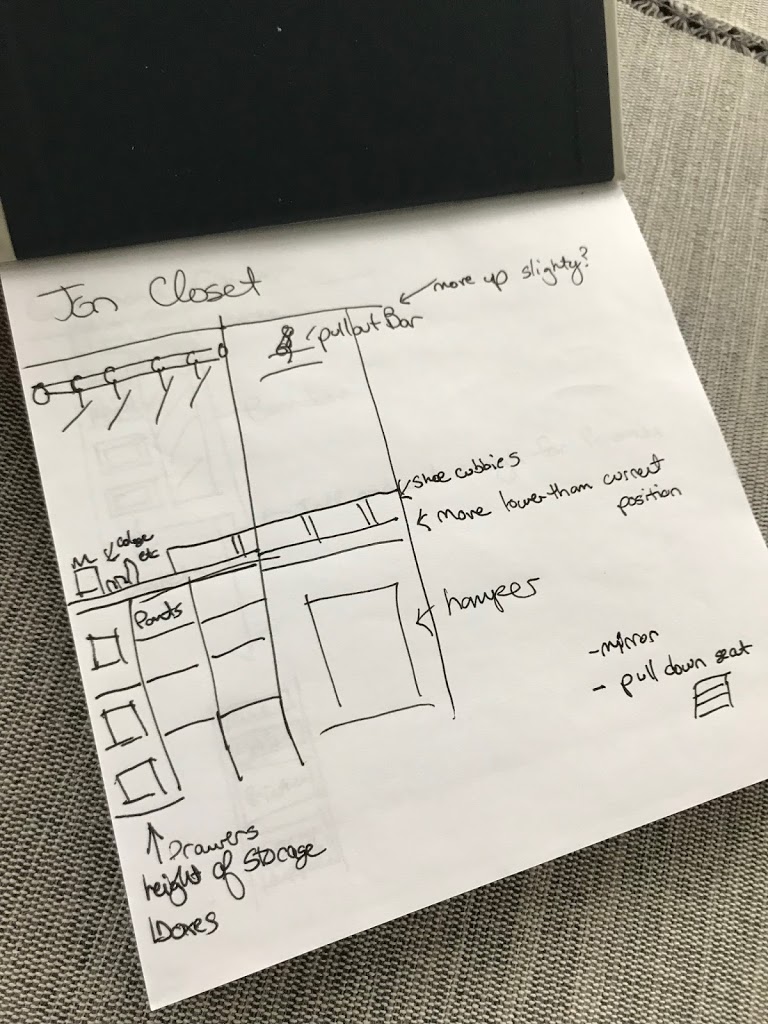 Jon Closet
move up slighty?
pullout Bar
shoe cubbies
move lower than current
position
etc
Pants
hamper
- mirror
- pull down seat
Drawers
height of storage
boxes